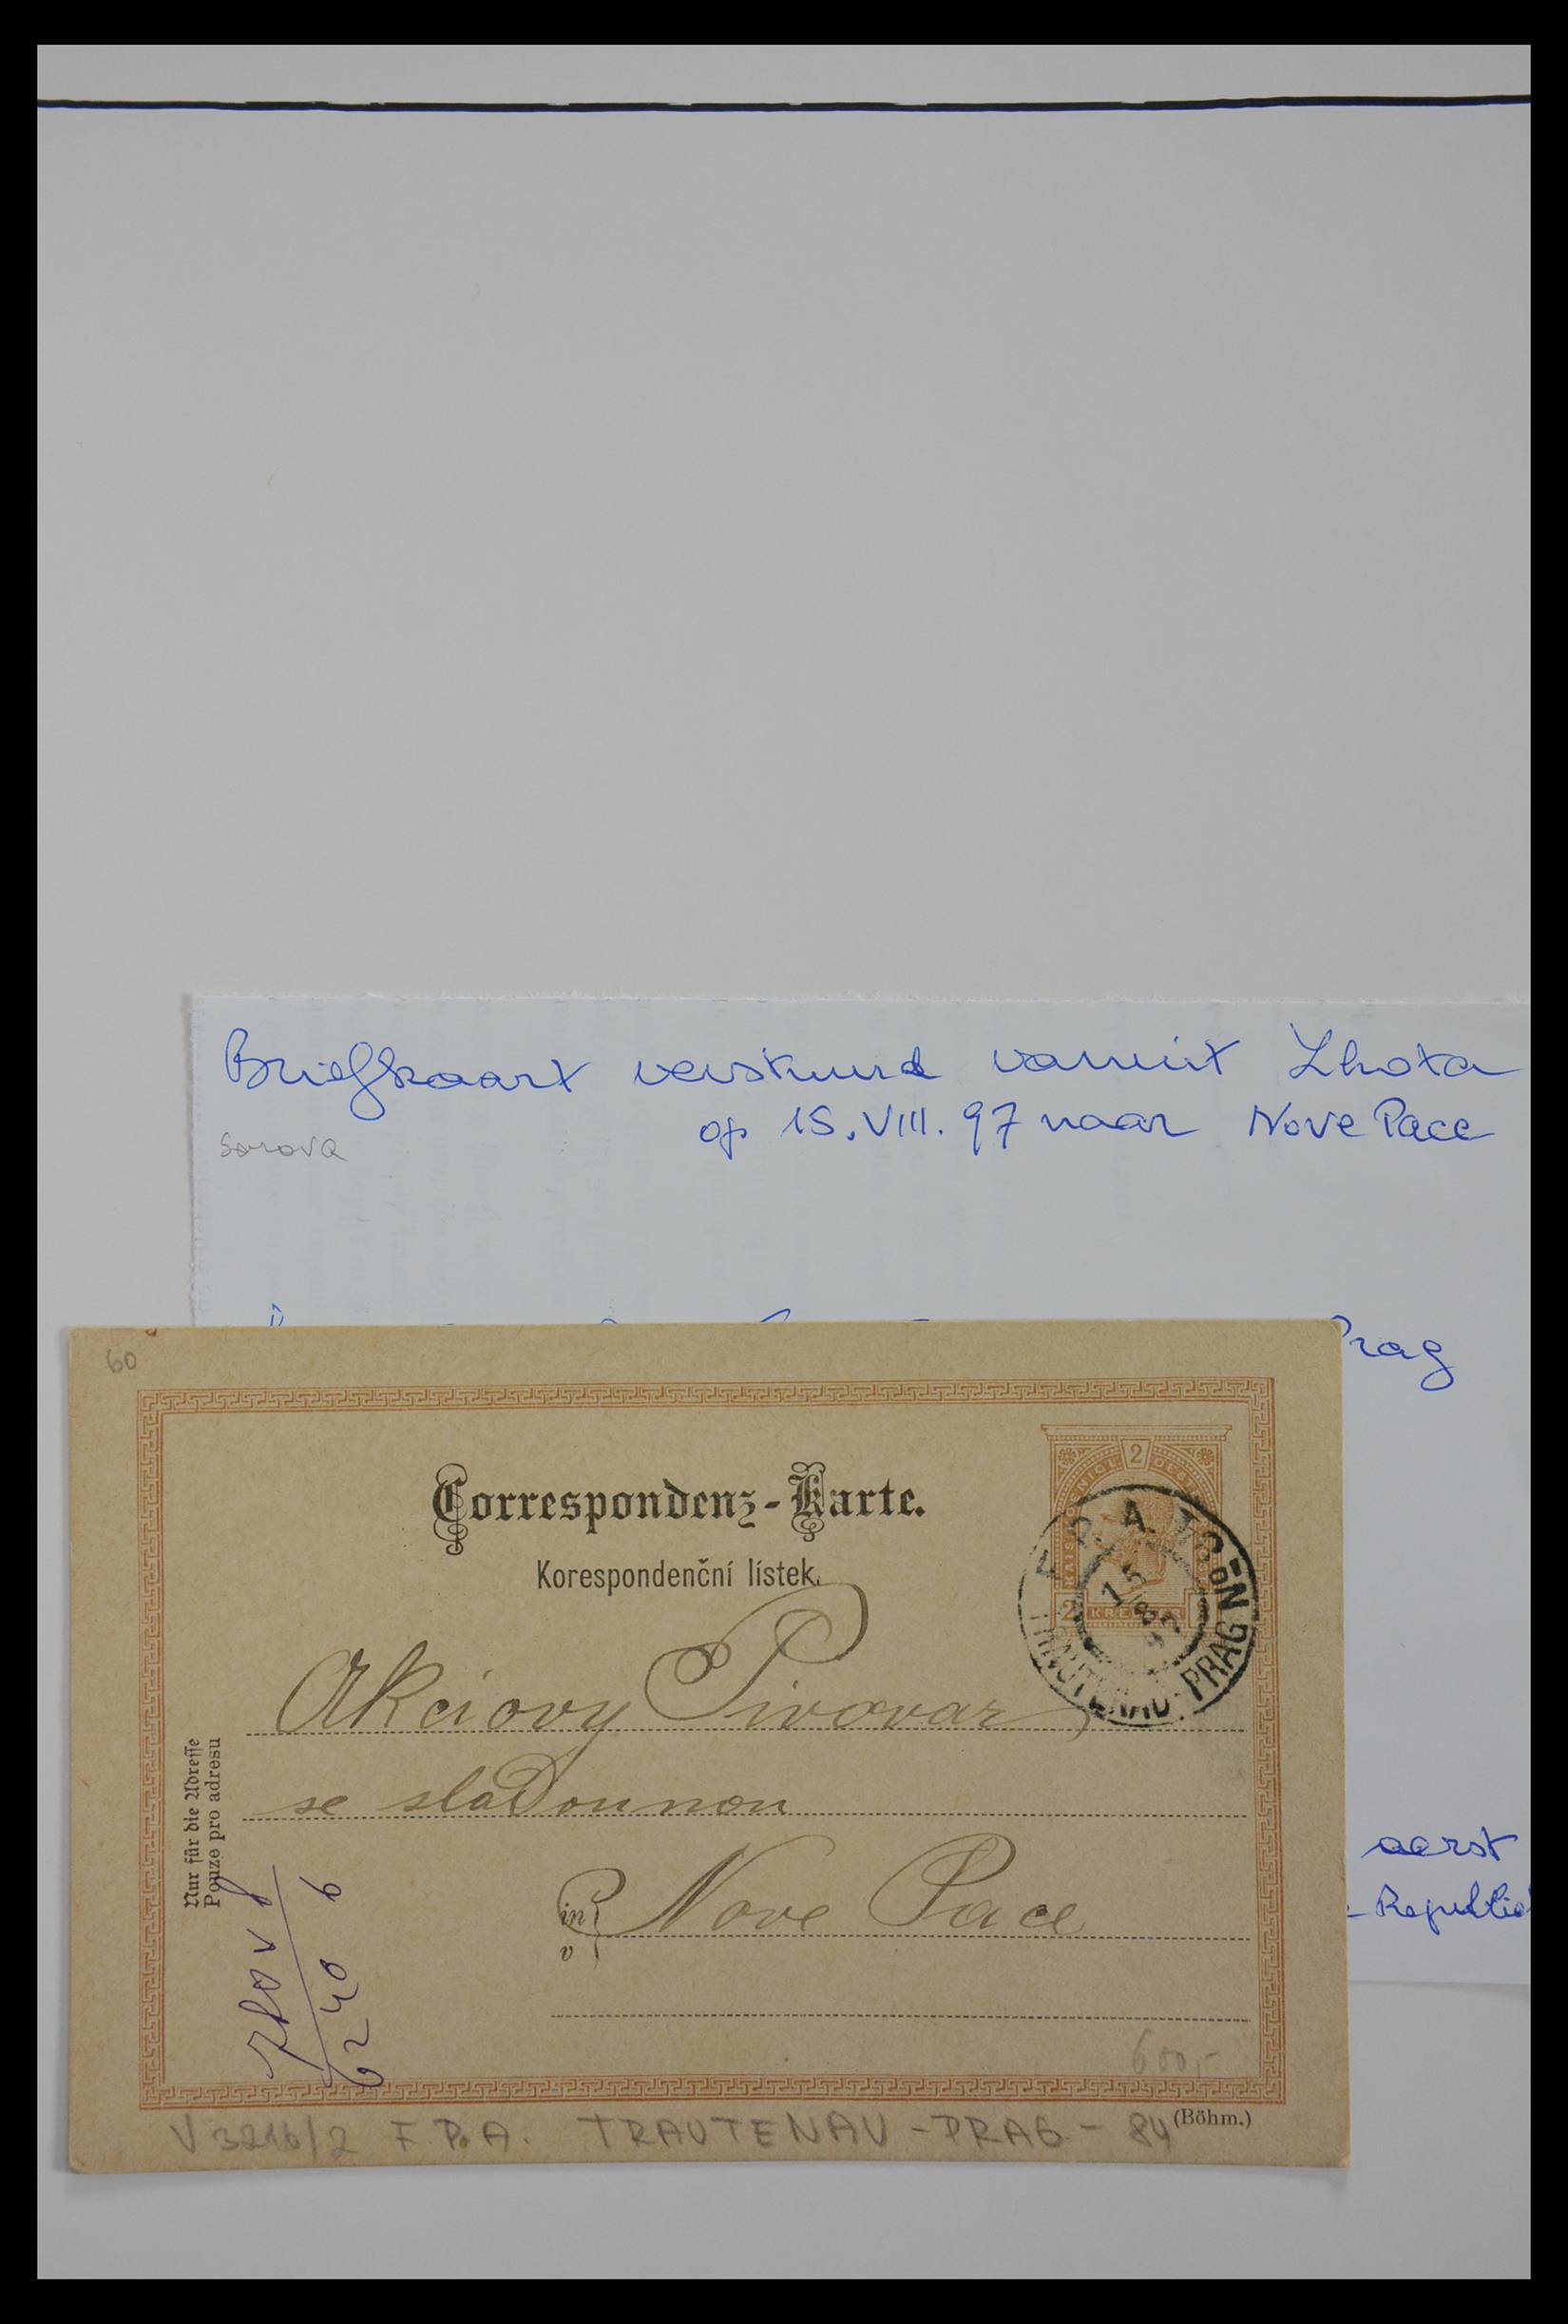 Briefkaart verstuurd vanuit Lhota
op 15.VIII.97 naar Nove Pace
Sorova
Prag
aerst
60
Correspondenz-Karte.
Korespondenční lístek.
2
KREUZER
F. P. A.
15
8
TRAUTENAU-PRAG
Akciovy Pivovar
se sladounou
Nur für die Adresse
Pouze pro adresu
in
v
Nove Pace
6240 6
600,-
(Böhm.)
V 3216/2 F.P.A. TRAUTENAU-PRAG-84